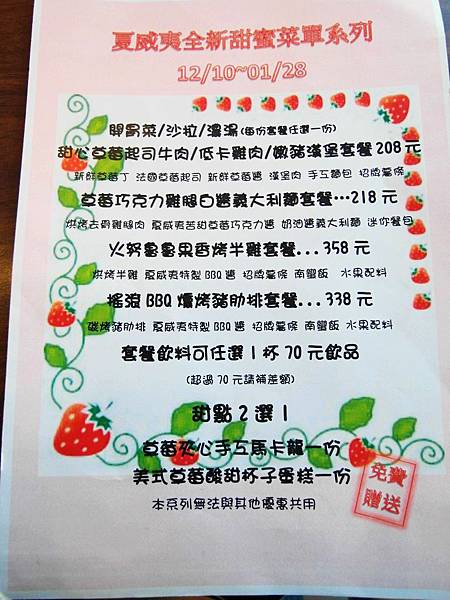 夏威夷全新甜蜜菜單系列
12/10~01/28
開胃菜/沙拉/濃湯(每份套餐任選一份)
甜心草莓起司牛肉/低卡雞肉/嫩豬漢堡套餐208元
新鮮草莓丁 法國草莓起司 新鮮草莓醬 漢堡肉 手工麵包 招牌薯條
草莓巧克力雞腿白醬義大利麵套餐...218元
烘烤去骨雞腿肉 夏威夷苦甜草莓巧克力醬 奶油醬義大利麵 迷你餐包
火努魯魯果香烤半雞套餐...358元
烘烤半雞 夏威夷特製BBQ醬 招牌薯條 南蠻飯 水果配料
搖滾BBQ爐烤豬肋排套餐...338元
碳烤豬肋排 夏威夷特製BBQ醬 招牌薯條 南蠻飯 水果配料
套餐飲料可任選1杯70元飲品
(超過70元請補差額)
甜點2選1
草莓夾心手工馬卡龍一份
美式草莓酸甜杯子蛋糕一份
免費
贈送
本系列無法與其他優惠共用